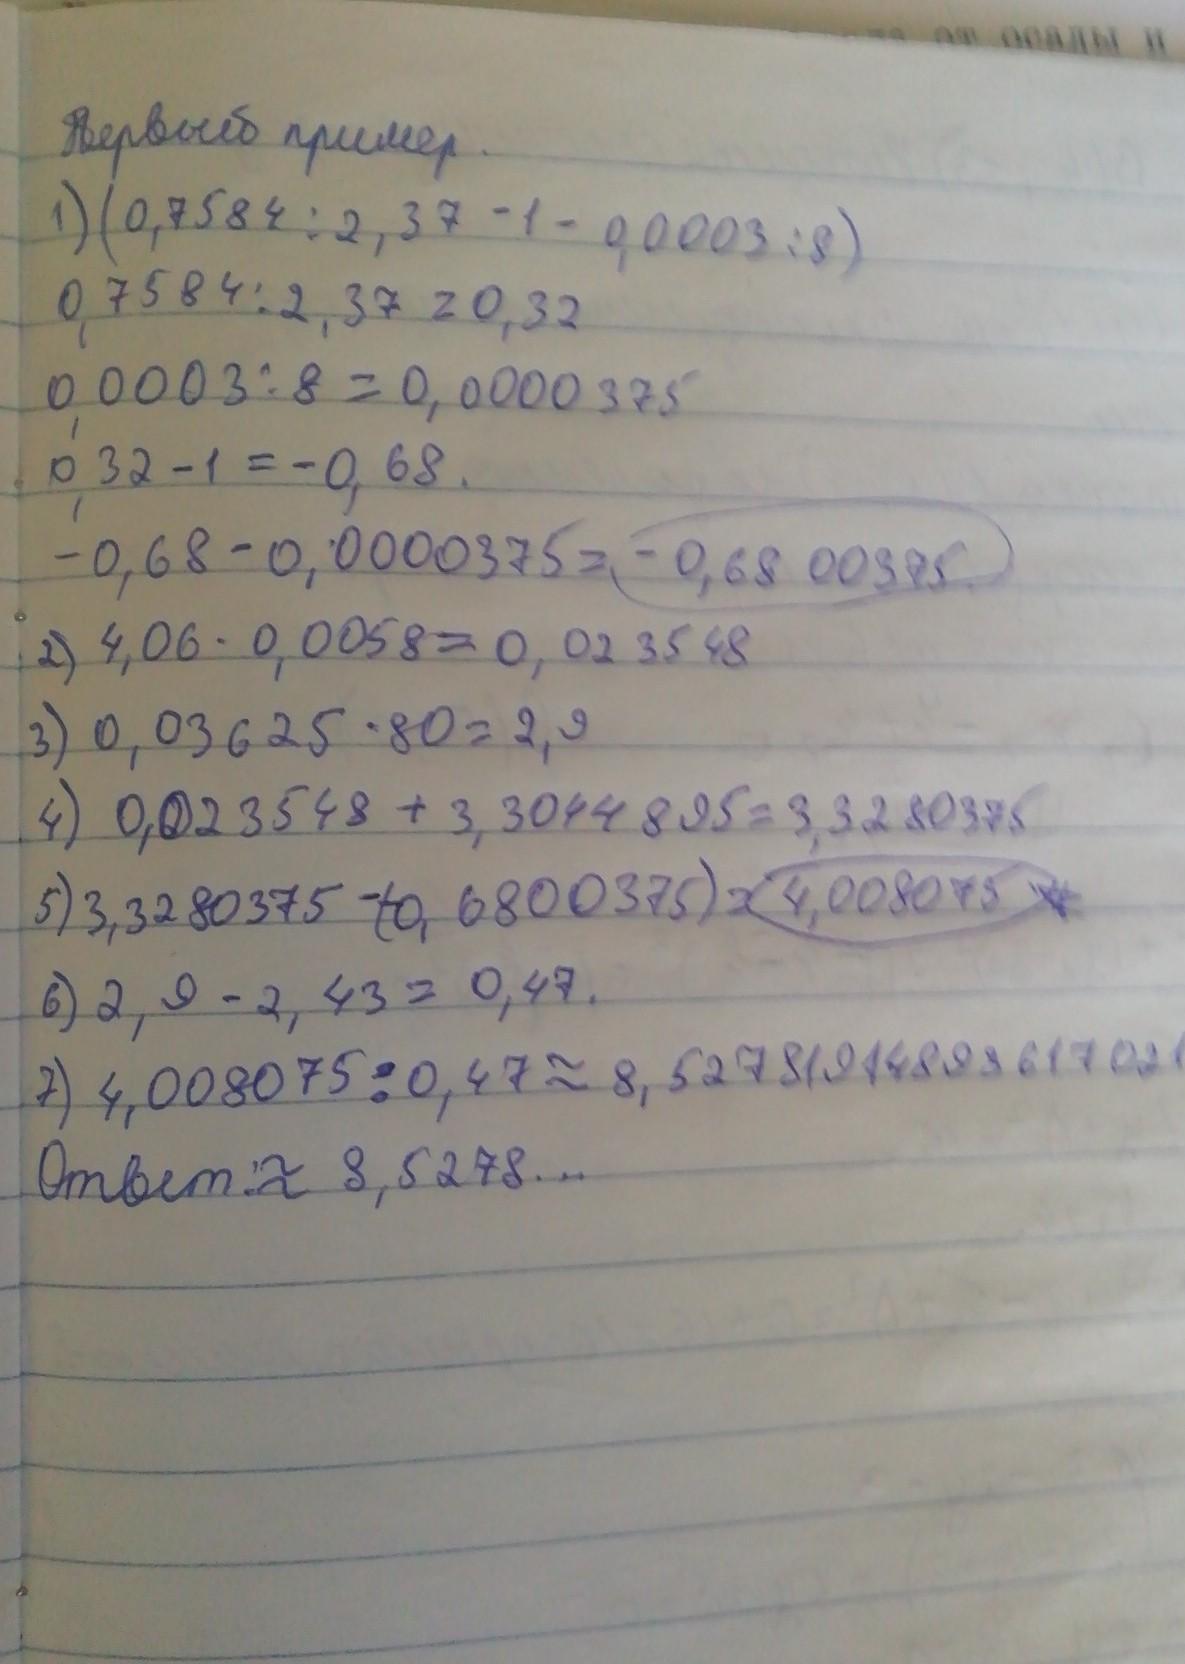 Первый пример.
1) (0,7584:2,37 - 1 - 0,0003:8)
0,7584:2,37 = 0,32
0,0003:8 = 0,0000375
0,32 - 1 = -0,68.
-0,68 - 0,0000375 = -0,6800375
2) 4,06 · 0,0058 = 0,023548
3) 0,03625 · 80 = 2,9
4) 0,023548 + 3,3044895 = 3,3280375
5) 3,3280375 - (0,6800375) = 4,008075
6) 2,9 - 2,43 = 0,47.
7) 4,008075 : 0,47 ≈ 8,52781914893617021
Ответ: ≈ 8,5278...